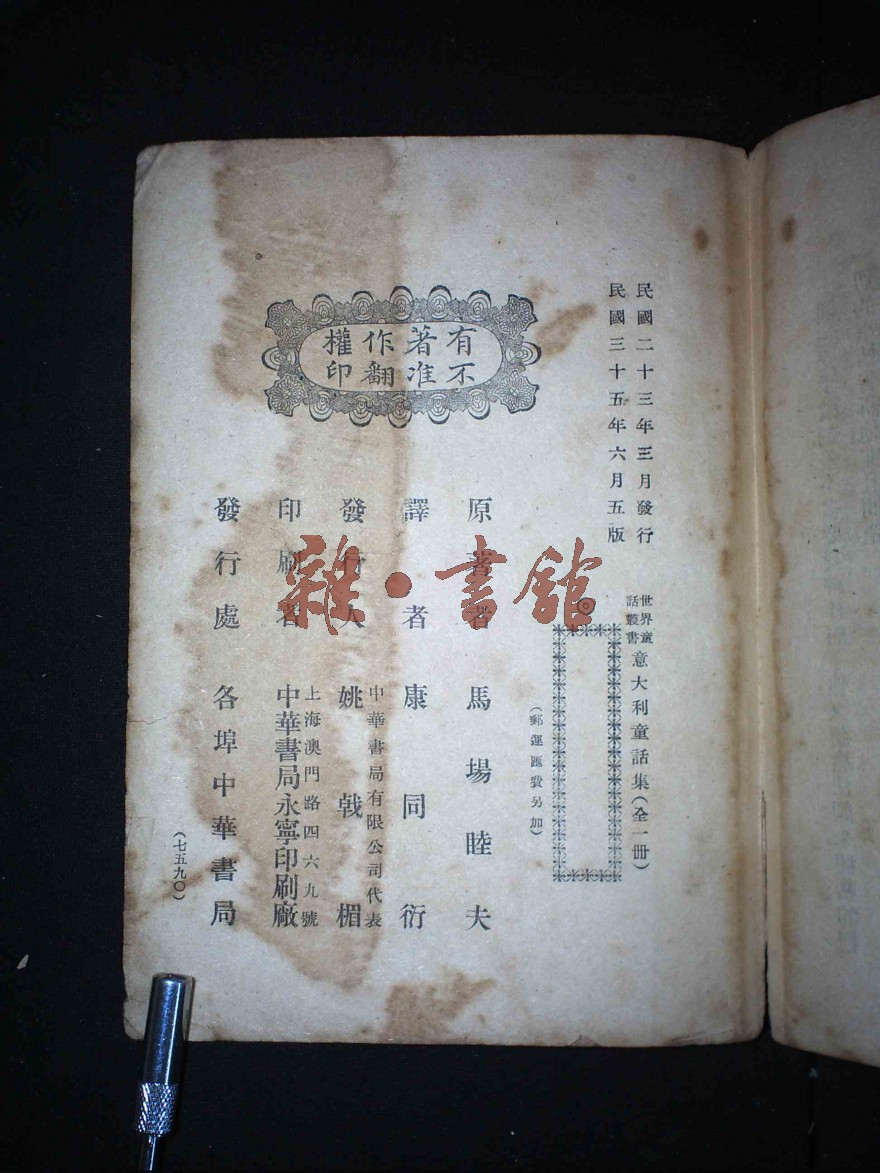 民國二十三年三月發行
民國三十五年六月五版
世界童
話叢書
意大利童話集(全一冊)
◎
(郵運匯費另加)
有著作權
不准翻印
原著者 馬場睦夫
譯者 康同衍
發行人 姚戟楣
中華書局有限公司代表
印刷者 中華書局永寧印刷廠
上海澳門路四六九號
發行處 各埠中華書局
(七五九〇)
雜·書館